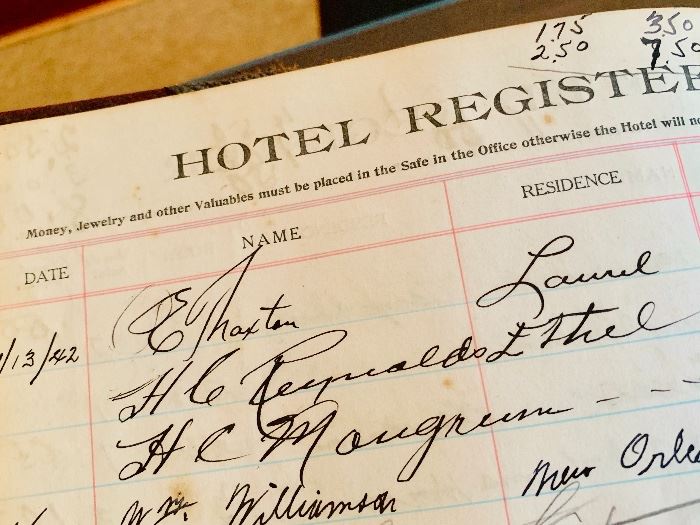 1.75 3.50
2.50 7.50
HOTEL REGISTE
Money, Jewelry and other Valuables must be placed in the Safe in the Office otherwise the Hotel will
DATE NAME RESIDENCE
/13/42 E Thaxton Laurel
H C Reynolds Ethel
H C Mangrum - - -
Wm. Williamson New Orle